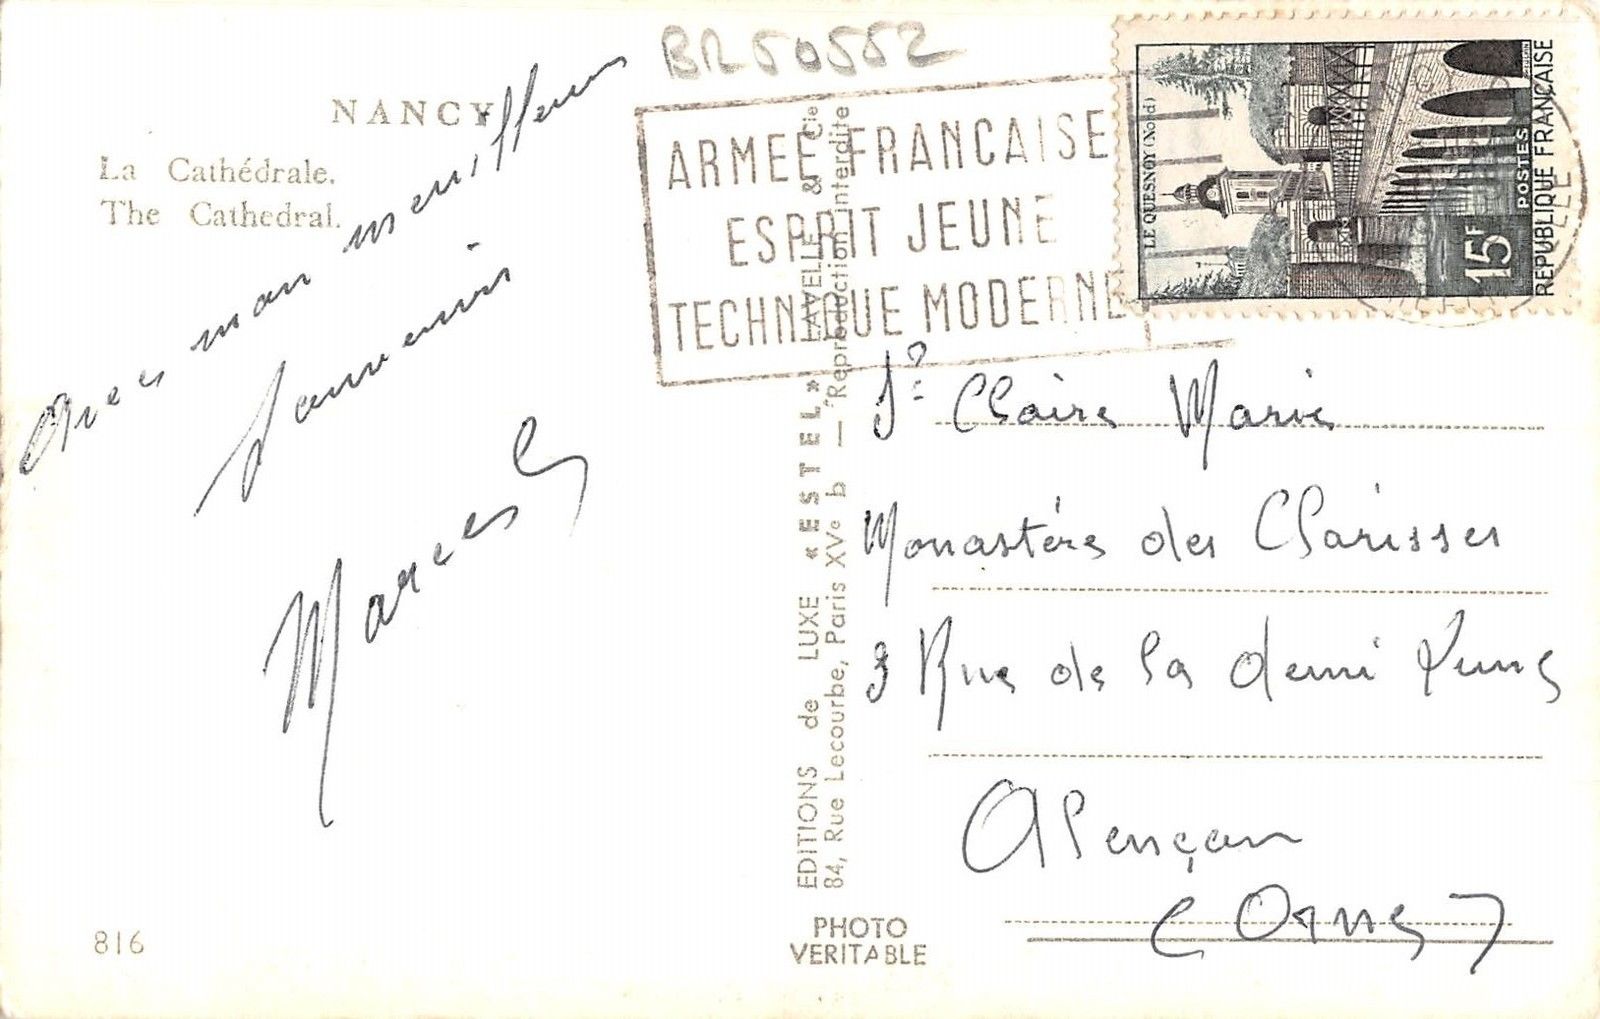 BR50552
NANCY
La Cathédrale.
The Cathedral.
Avec mon meilleur
souvenir
Marcel
816
EDITIONS de LUXE «ESTEL» LAVELLE & Cie
84, Rue Lecourbe, Paris XVe b — Reproduction interdite
PHOTO
VERITABLE
ARMEE FRANCAISE
ESPRIT JEUNE
TECHNIQUE MODERNE
LE QUESNOY (Nord)
15F
POSTES
REPUBLIQUE FRANÇAISE
Sr Claire Marie
Monastère des Clarisses
3 Rue de la demi Lune
Alençon
(Orne)